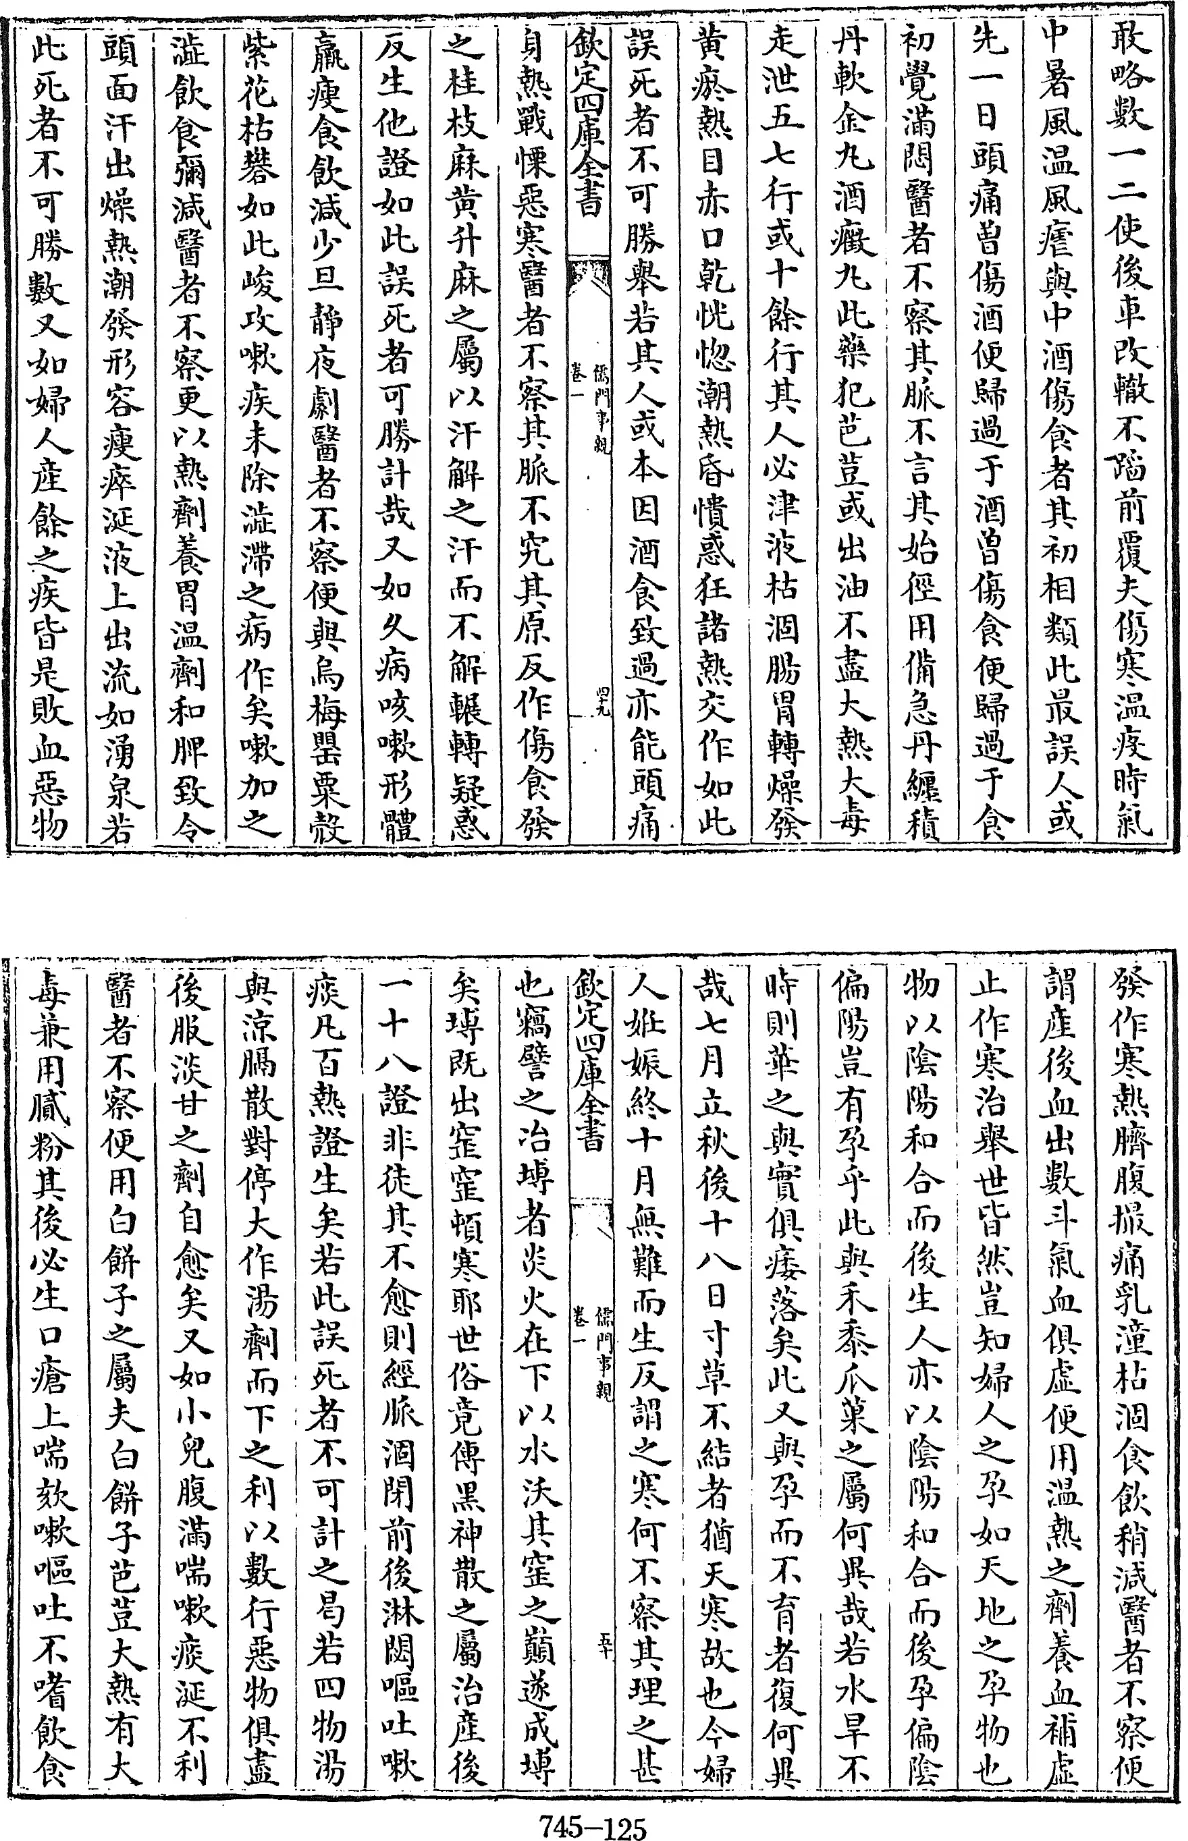 敢略數一二使後車改轍不蹈前覆夫傷寒温疫時氣
中暑風温風瘧與中酒傷食者其初相類此最誤人或
先一日頭痛曽傷酒便歸過于酒曽傷食便歸過于食
初覺滿悶醫者不察其脈不言其始徑用備急丹纏積
丹軟金丸酒癥丸此藥犯芭荳或出油不盡大熱大毒
走泄五七行或十餘行其人必津液枯涸腸胃轉燥發
黄瘀熱目赤口乾恍惚潮熱昏憒惑狂諸熱交作如此
誤死者不可勝舉若其人或本因酒食致過亦能頭痛
欽定四庫全書
儒門事親
卷一
四十九
身熱戰慄惡寒醫者不察其脈不究其原反作傷食發
之桂枝麻黄升麻之屬以汗解之汗而不解輾轉疑惑
反生他證如此誤死者可勝計哉又如久病咳嗽形體
羸瘦食飲減少旦靜夜劇醫者不察便與烏梅罌粟殼
紫花枯礬如此峻攻嗽疾未除澁滯之病作矣嗽加之
澁飲食彌減醫者不察更以熱劑養胃温劑和脾致令
頭面汗出燥熱潮發形容瘦瘁涎液上出流如湧泉若
此死者不可勝數又如婦人産餘之疾皆是敗血惡物
發作寒熱臍腹撮痛乳湩枯涸食飲稍減醫者不察便
謂産後血出數斗氣血俱虛便用温熱之劑養血補虛
止作寒治舉世皆然豈知婦人之孕如天地之孕物也
物以陰陽和合而後生人亦以陰陽和合而後孕偏陰
偏陽豈有孕乎此與禾黍瓜菓之屬何異哉若水旱不
時則華之與實俱痿落矣此又與孕而不育者復何異
哉七月立秋後十八日寸草不結者猶天寒故也今婦
人妊娠終十月無難而生反謂之寒何不察其理之甚
欽定四庫全書
儒門事親
卷一
五十
也竊譬之冶塼者炎火在下以水沃其窑之巔遂成塼
矣塼既出窑窑頓寒耶世俗竟傳黑神散之屬治産後
一十八證非徒其不愈則經脈涸閉前後淋閟嘔吐嗽
痰凡百熱證生矣若此誤死者不可計之曷若四物湯
與涼膈散對停大作湯劑而下之利以數行惡物俱盡
後服淡甘之劑自愈矣又如小兒腹滿喘嗽痰涎不利
醫者不察便用白餅子之屬夫白餅子芭荳大熱有大
毒兼用膩粉其後必生口瘡上喘欬嗽嘔吐不嗜飲食
745-125